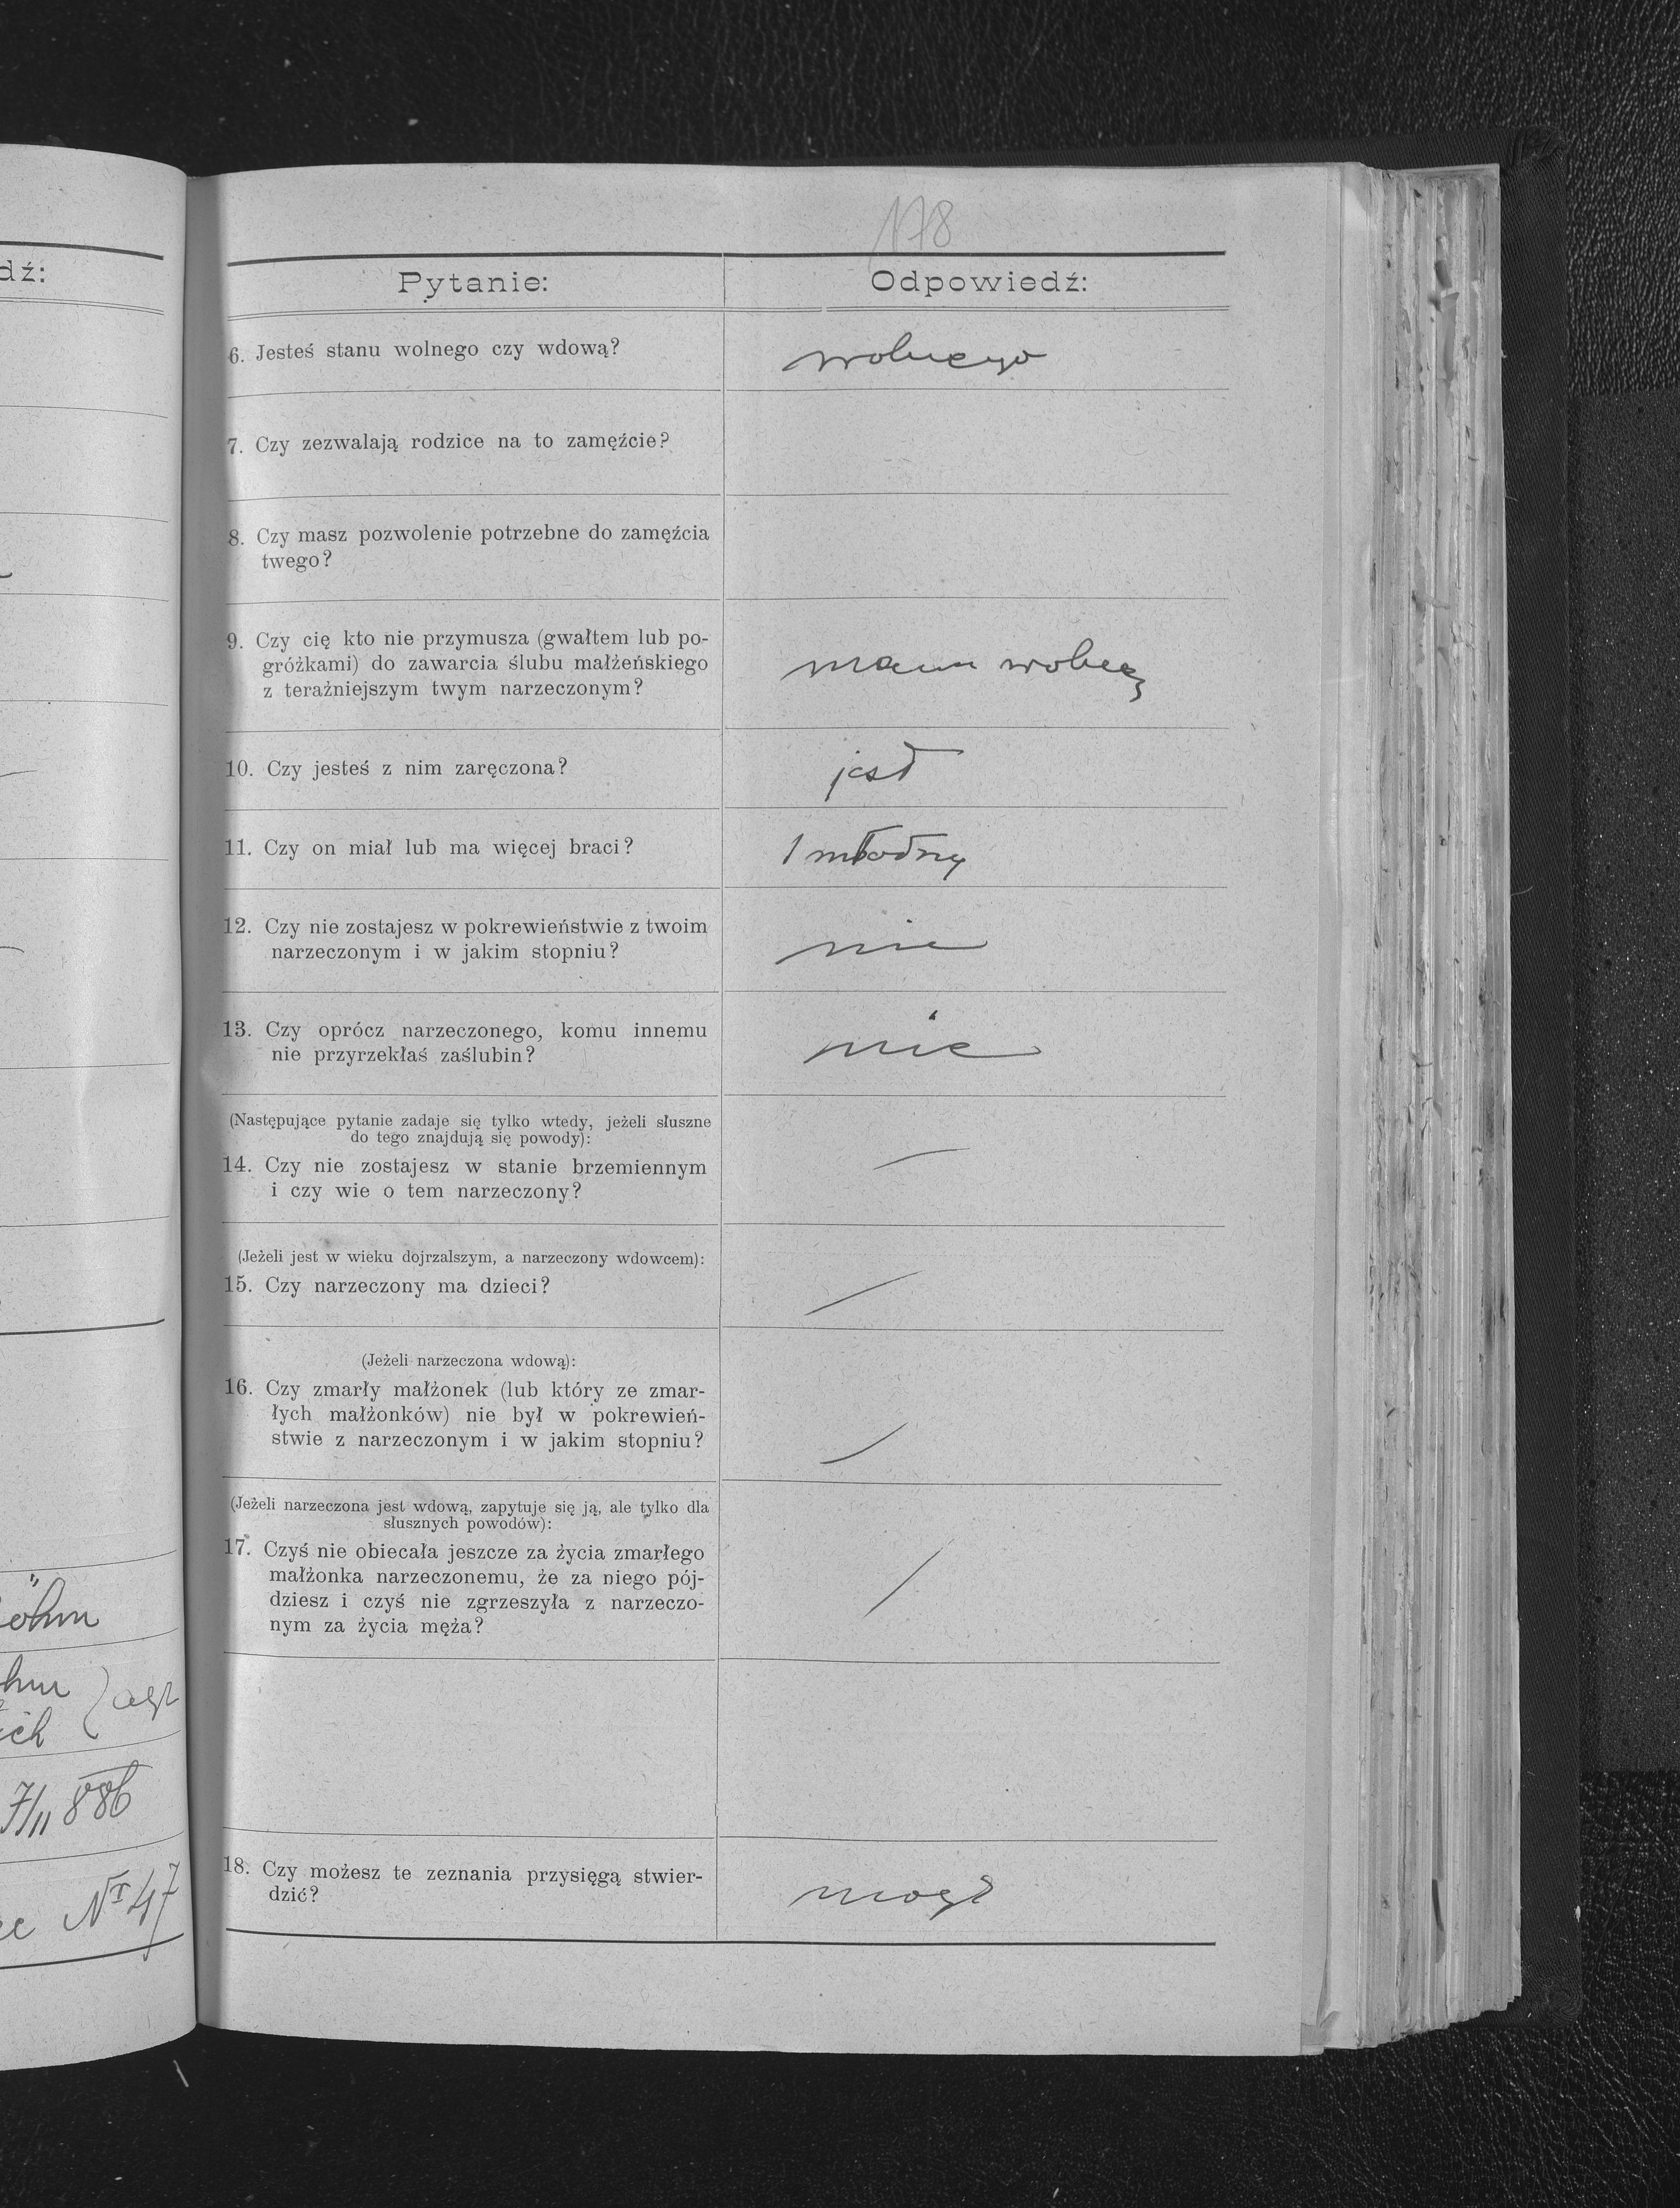 178
dź:
Pytanie:
Odpowiedź:
6. Jesteś stanu wolnego czy wdową?
wolnego
7. Czy zezwalają rodzice na to zamęźcie?
8. Czy masz pozwolenie potrzebne do zamęźcia
twego?
9. Czy cię kto nie przymusza (gwałtem lub po-
gróżkami) do zawarcia ślubu małżeńskiego
z teraźniejszym twym narzeczonym?
mam wolną
10. Czy jesteś z nim zaręczona?
jest
11. Czy on miał lub ma więcej braci?
1 młodszy
12. Czy nie zostajesz w pokrewieństwie z twoim
narzeczonym i w jakim stopniu?
nie
13. Czy oprócz narzeczonego, komu innemu
nie przyrzekłaś zaślubin?
nie
(Następujące pytanie zadaje się tylko wtedy, jeżeli słuszne
do tego znajdują się powody):
14. Czy nie zostajesz w stanie brzemiennym
i czy wie o tem narzeczony?
(Jeżeli jest w wieku dojrzalszym, a narzeczony wdowcem):
15. Czy narzeczony ma dzieci?
(Jeżeli narzeczona wdową):
16. Czy zmarły małżonek (lub który ze zmar-
łych małżonków) nie był w pokrewień-
stwie z narzeczonym i w jakim stopniu?
(Jeżeli narzeczona jest wdową, zapytuje się ją, ale tylko dla
słusznych powodów):
17. Czyś nie obiecała jeszcze za życia zmarłego
małżonka narzeczonemu, że za niego pój-
dziesz i czyś nie zgrzeszyła z narzeczo-
nym za życia męża?
18. Czy możesz te zeznania przysięgą stwier-
dzić?
mogę
öhm
hm
ich
7/11 886
№ 47